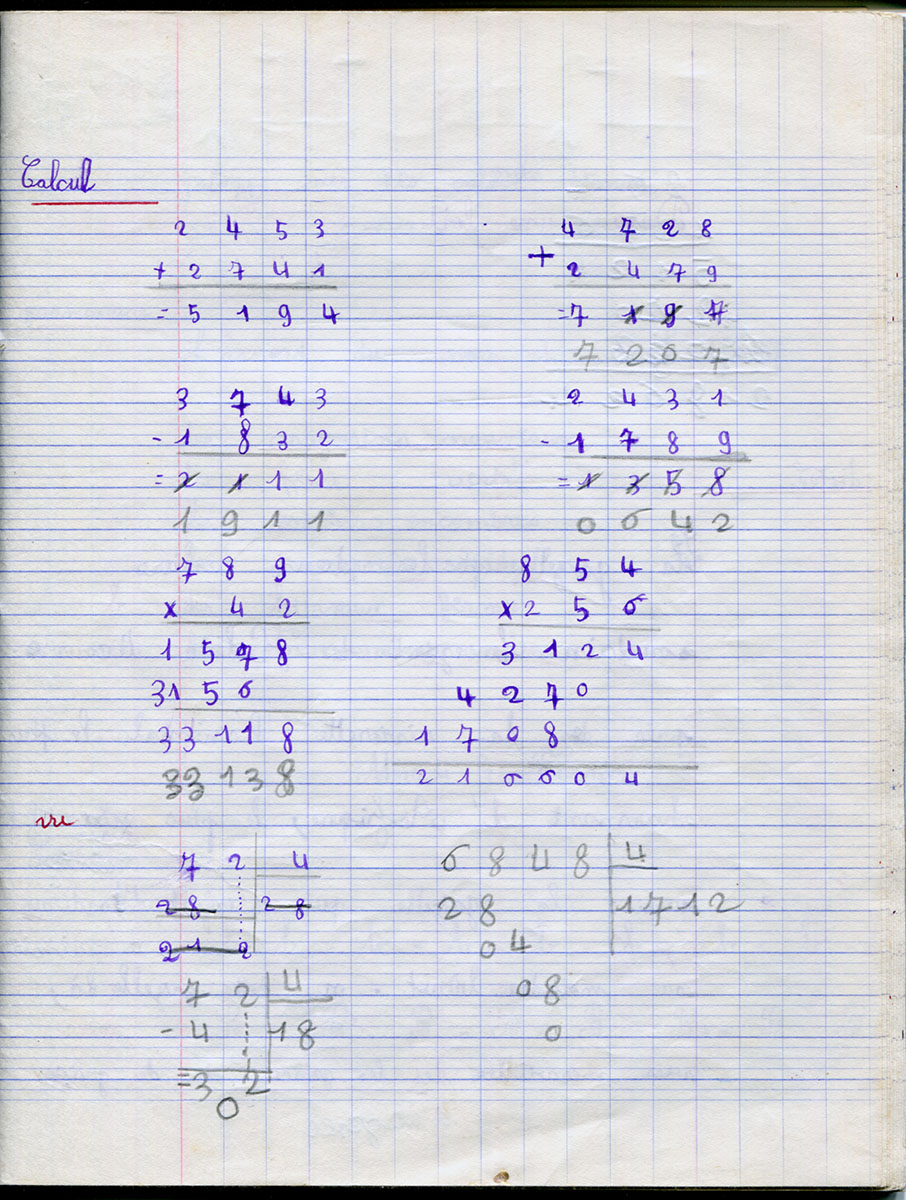 Calcul
2 4 5 3
+ 2 7 4 1
= 5 1 9 4
4 7 2 8
+ 2 4 7 9
= 7 1 9 7
7 2 0 7
3 7 4 3
- 1 8 3 2
= 2 1 1 1
1 9 1 1
2 4 3 1
- 1 7 8 9
= 1 3 5 8
0 6 4 2
7 8 9
x 4 2
1 5 7 8
31 5 6
33 11 8
33 13 8
8 5 4
x 2 5 6
3 1 2 4
4 2 7 0
1 7 0 8
2 1 6 6 0 4
vu
7 2 4
28 28
21 2
7 2 4
- 4 18
= 3 2
0
6 8 4 8 4
2 8 1712
0 4
0 8
0